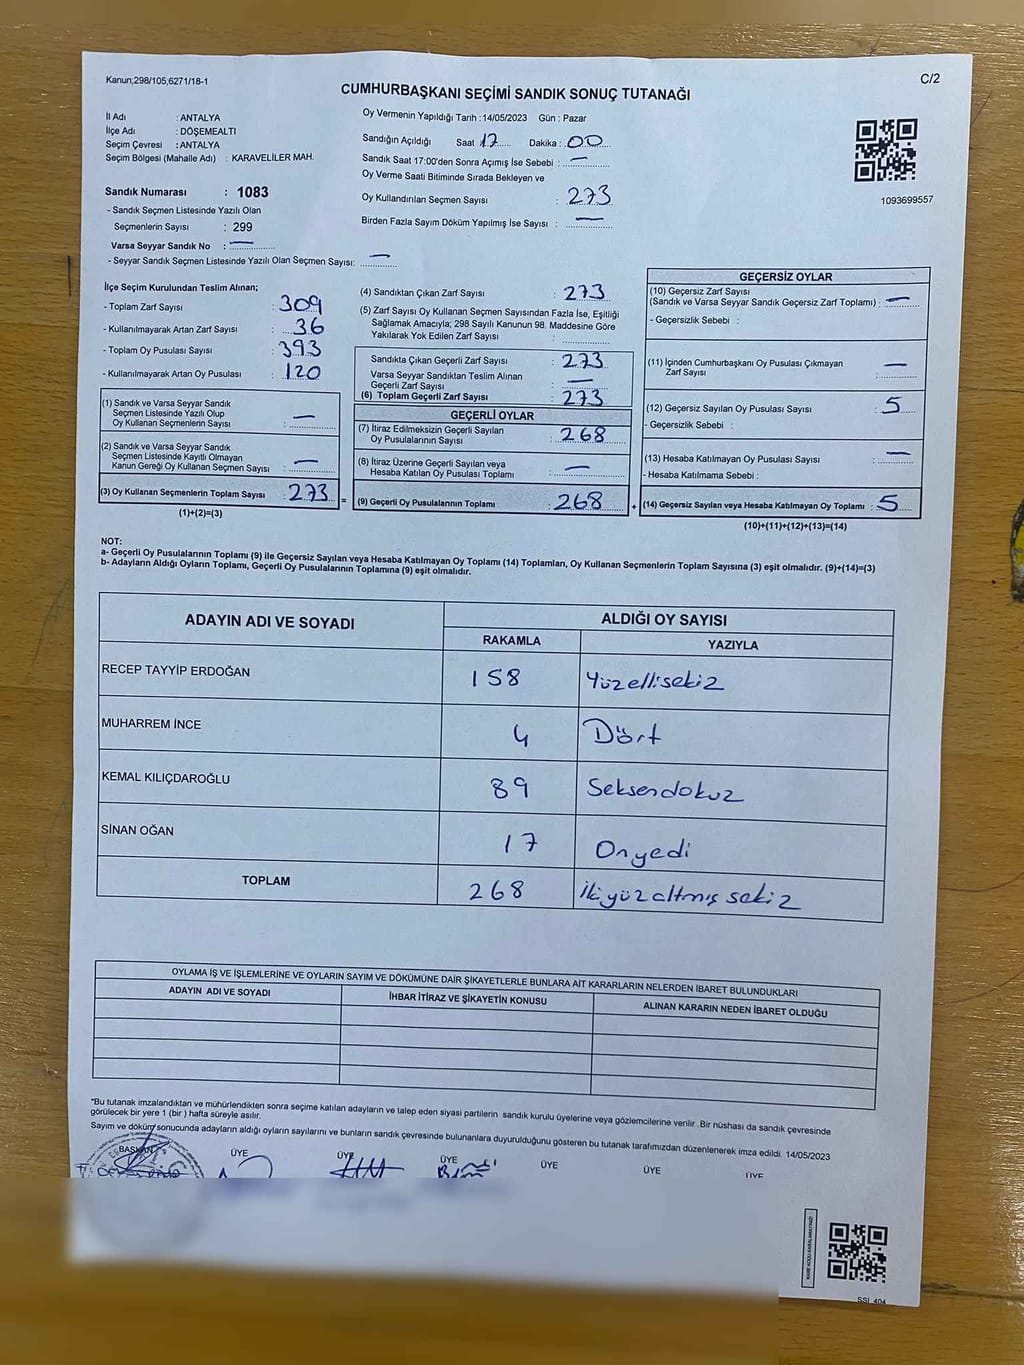 Kanun;298/105,6271/18-1
C/2
CUMHURBAŞKANI SEÇİMİ SANDIK SONUÇ TUTANAĞI
İl Adı : ANTALYA
İlçe Adı : DÖŞEMEALTI
Seçim Çevresi : ANTALYA
Seçim Bölgesi (Mahalle Adı) : KARAVELİLER MAH.
Sandık Numarası : 1083
- Sandık Seçmen Listesinde Yazılı Olan
Seçmenlerin Sayısı : 299
Varsa Seyyar Sandık No : —
- Seyyar Sandık Seçmen Listesinde Yazılı Olan Seçmen Sayısı: —
Oy Vermenin Yapıldığı Tarih : 14/05/2023 Gün : Pazar
Sandığın Açıldığı Saat 17 Dakika : 00
Sandık Saat 17:00'den Sonra Açımış İse Sebebi : —
Oy Verme Saati Bitiminde Sırada Bekleyen ve
Oy Kullandırılan Seçmen Sayısı : 273
Birden Fazla Sayım Döküm Yapılmış İse Sayısı : —
1093699557
İlçe Seçim Kurulundan Teslim Alınan;
- Toplam Zarf Sayısı : 309
- Kullanılmayarak Artan Zarf Sayısı : 36
- Toplam Oy Pusulası Sayısı : 393
- Kullanılmayarak Artan Oy Pusulası : 120
(1) Sandık ve Varsa Seyyar Sandık
Seçmen Listesinde Yazılı Olup
Oy Kullanan Seçmenlerin Sayısı : —
(2) Sandık ve Varsa Seyyar Sandık
Seçmen Listesinde Kayıtlı Olmayan
Kanun Gereği Oy Kullanan Seçmen Sayısı : —
(3) Oy Kullanan Seçmenlerin Toplam Sayısı : 273 =
(1)+(2)=(3)
(4) Sandıktan Çıkan Zarf Sayısı : 273
(5) Zarf Sayısı Oy Kullanan Seçmen Sayısından Fazla İse, Eşitliği
Sağlamak Amacıyla; 298 Sayılı Kanunun 98. Maddesine Göre
Yakılarak Yok Edilen Zarf Sayısı :
Sandıkta Çıkan Geçerli Zarf Sayısı : 273
Varsa Seyyar Sandıktan Teslim Alınan
Geçerli Zarf Sayısı : —
(6) Toplam Geçerli Zarf Sayısı : 273
GEÇERLİ OYLAR
(7) İtiraz Edilmeksizin Geçerli Sayılan
Oy Pusulalarının Sayısı : 268
(8) İtiraz Üzerine Geçerli Sayılan veya
Hesaba Katılan Oy Pusulası Toplamı : —
(9) Geçerli Oy Pusulalarının Toplamı : 268 +
GEÇERSİZ OYLAR
(10) Geçersiz Zarf Sayısı
(Sandık ve Varsa Seyyar Sandık Geçersiz Zarf Toplamı) : —
- Geçersizlik Sebebi :
(11) İçinden Cumhurbaşkanı Oy Pusulası Çıkmayan
Zarf Sayısı : —
(12) Geçersiz Sayılan Oy Pusulası Sayısı : 5
- Geçersizlik Sebebi :
(13) Hesaba Katılmayan Oy Pusulası Sayısı : —
- Hesaba Katılmama Sebebi :
(14) Geçersiz Sayılan veya Hesaba Katılmayan Oy Toplamı : 5
(10)+(11)+(12)+(13)=(14)
NOT:
a- Geçerli Oy Pusulalarının Toplamı (9) ile Geçersiz Sayılan veya Hesaba Katılmayan Oy Toplamı (14) Toplamları, Oy Kullanan Seçmenlerin Toplam Sayısına (3) eşit olmalıdır. (9)+(14)=(3)
b- Adayların Aldığı Oyların Toplamı, Geçerli Oy Pusulalarının Toplamına (9) eşit olmalıdır.
ADAYIN ADI VE SOYADI ALDIĞI OY SAYISI
RAKAMLA YAZIYLA
RECEP TAYYİP ERDOĞAN 158 Yüzellisekiz
MUHARREM İNCE 4 Dört
KEMAL KILIÇDAROĞLU 89 Seksendokuz
SİNAN OĞAN 17 Onyedi
TOPLAM 268 İkiyüzaltmış sekiz
OYLAMA İŞ VE İŞLEMLERİNE VE OYLARIN SAYIM VE DÖKÜMÜNE DAİR ŞİKAYETLERLE BUNLARA AİT KARARLARIN NELERDEN İBARET BULUNDUKLARI
ADAYIN ADI VE SOYADI İHBAR İTİRAZ VE ŞİKAYETİN KONUSU ALINAN KARARIN NEDEN İBARET OLDUĞU
"Bu tutanak imzalandıktan ve mühürlendikten sonra seçime katılan adayların ve talep eden siyasi partilerin sandık kurulu üyelerine veya gözlemcilerine verilir. Bir nüshası da sandık çevresinde
görülecek bir yere 1 (bir) hafta süreyle asılır.
Sayım ve döküm sonucunda adayların aldığı oyların sayılarını ve bunların sandık çevresinde bulunanlara duyurulduğunu gösteren bu tutanak tarafımızdan düzenlenerek imza edildi. 14/05/2023
BAŞKAN ÜYE ÜYE ÜYE ÜYE ÜYE ÜYE
SSI_404